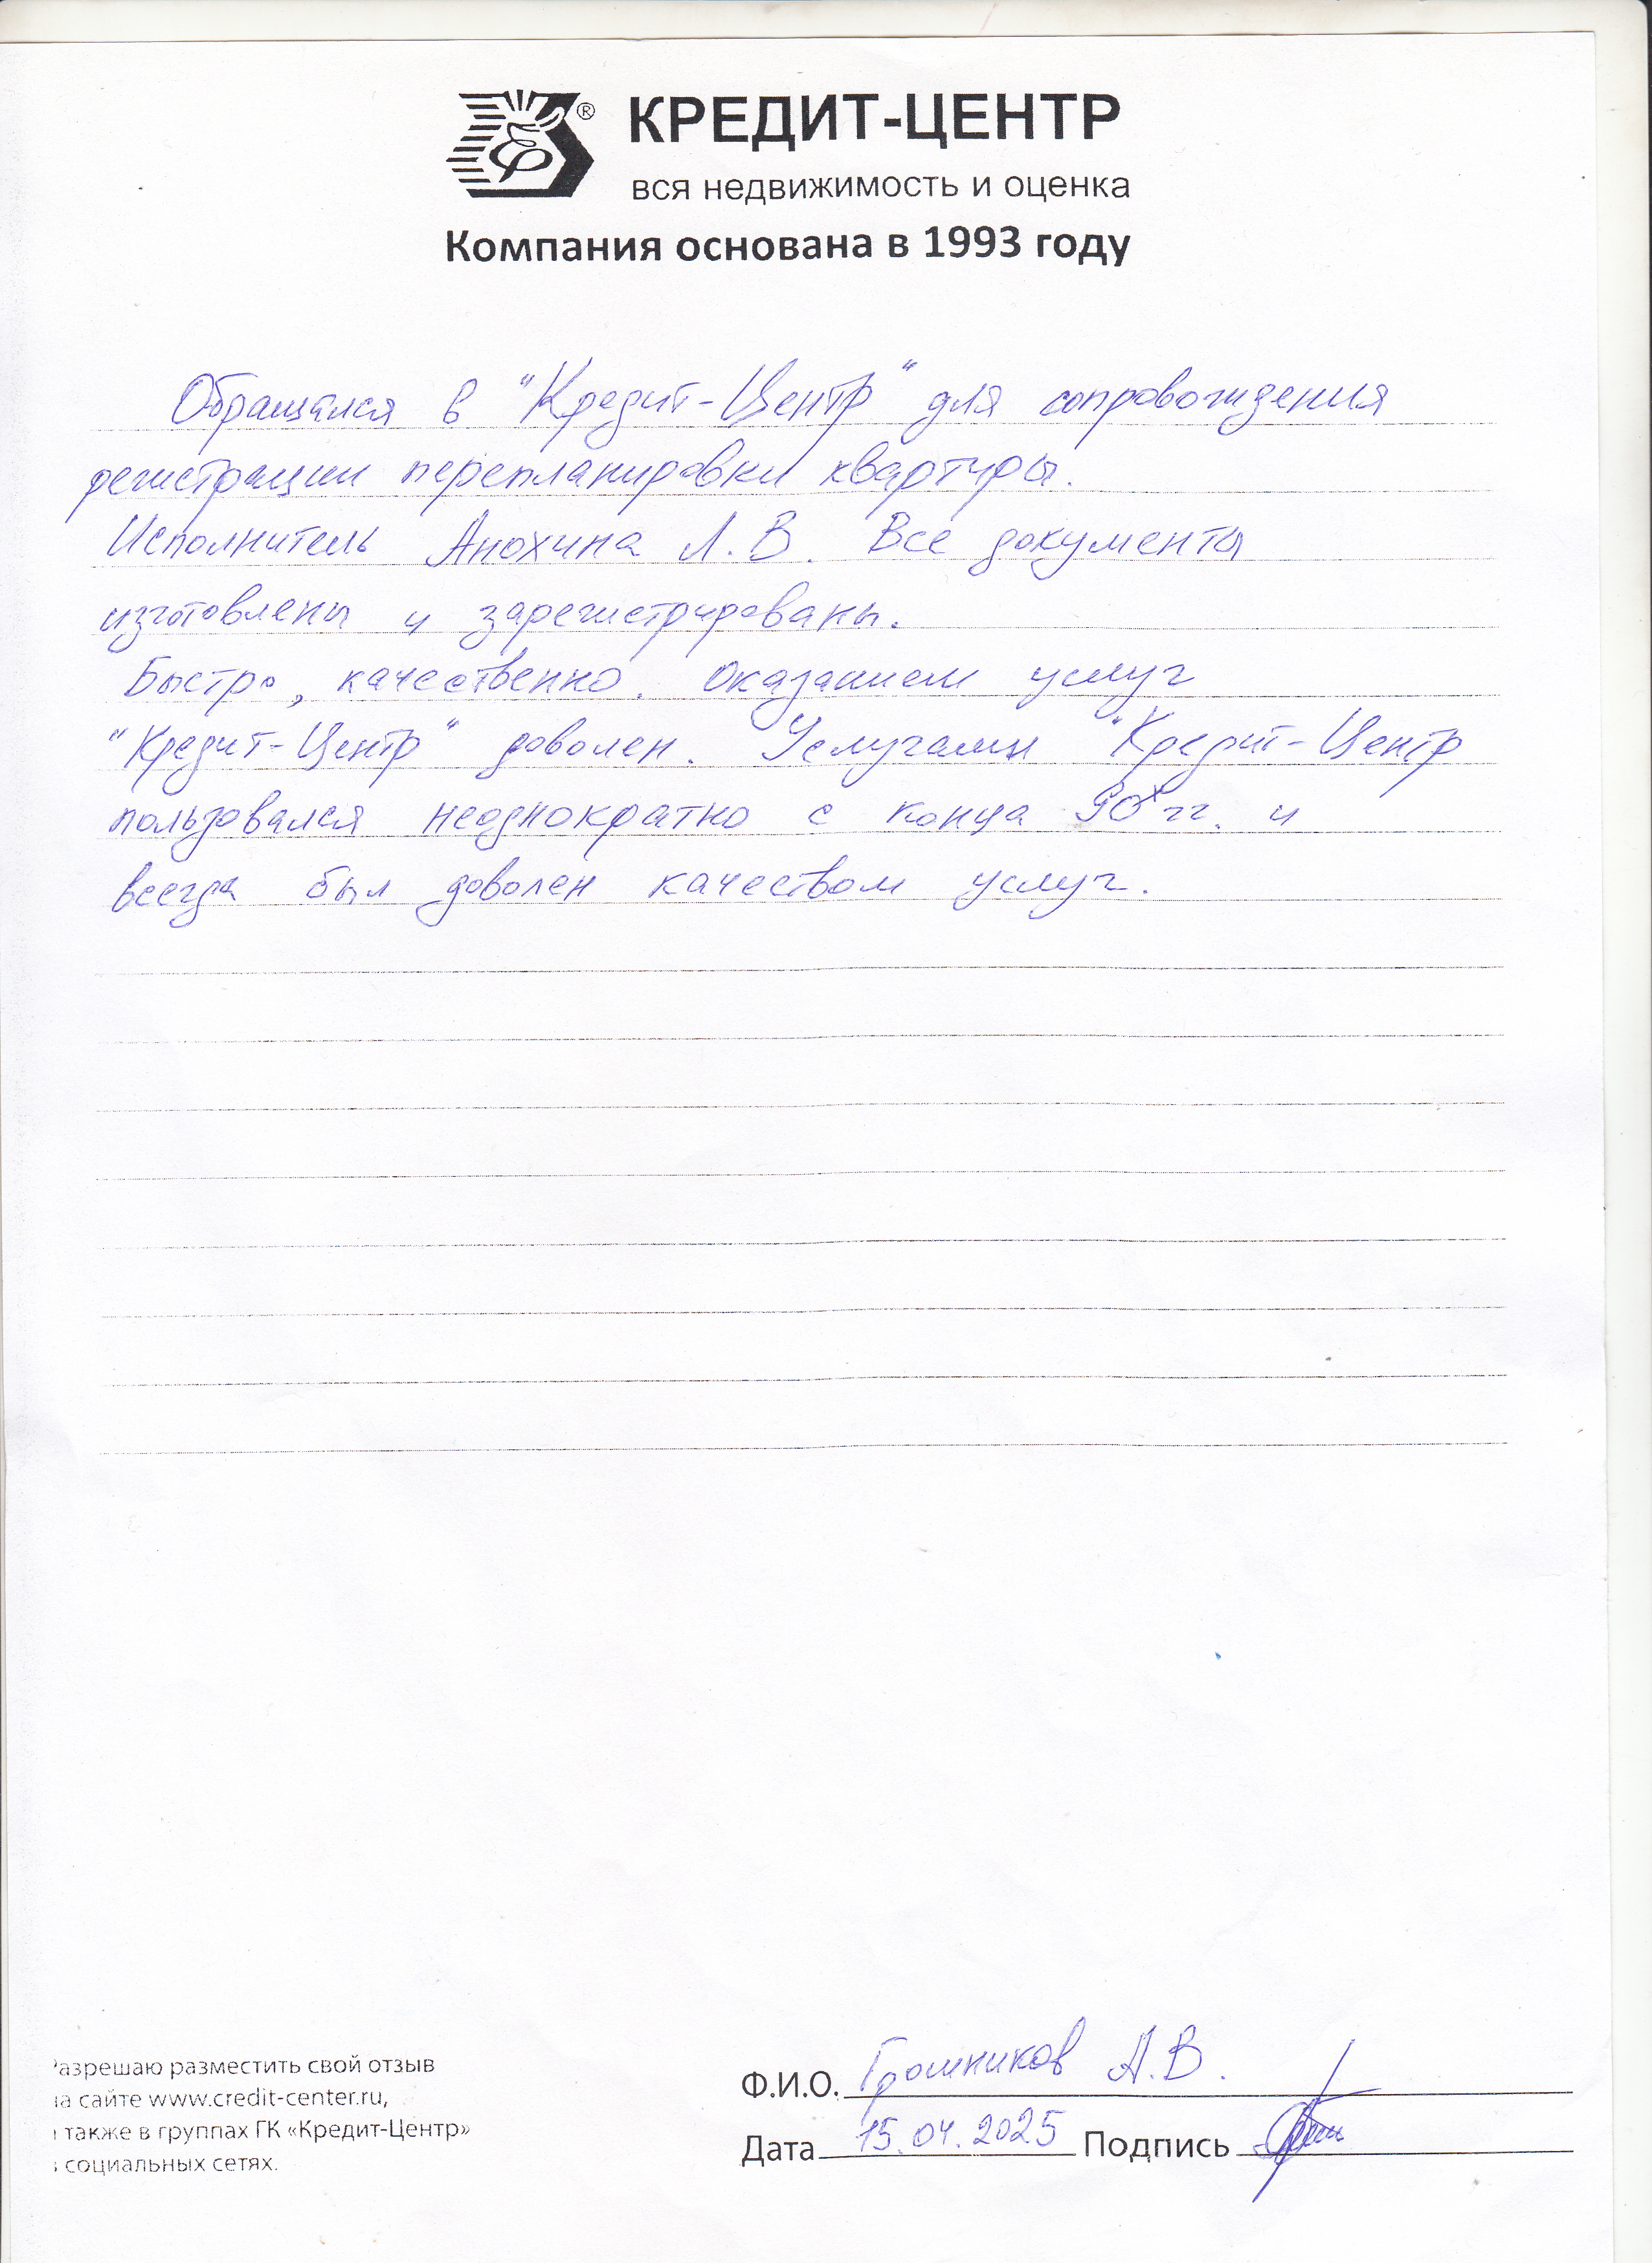 ®
КРЕДИТ-ЦЕНТР
вся недвижимость и оценка
Компания основана в 1993 году
Обращался в "Кредит-Центр" для сопровождения
регистрации перепланировки квартиры.
Исполнитель Анохина Л.В. Все документы
изготовлены и зарегистрированы.
Быстро, качественно. Оказанием услуг
"Кредит-Центр" доволен. Услугами "Кредит-Центр
пользовался неоднократно с конца 90х гг. и
всегда был доволен качеством услуг.
Разрешаю разместить свой отзыв
на сайте www.credit-center.ru,
а также в группах ГК «Кредит-Центр»
в социальных сетях.
Ф.И.О. Громников А.В.
Дата 15.04.2025 Подпись